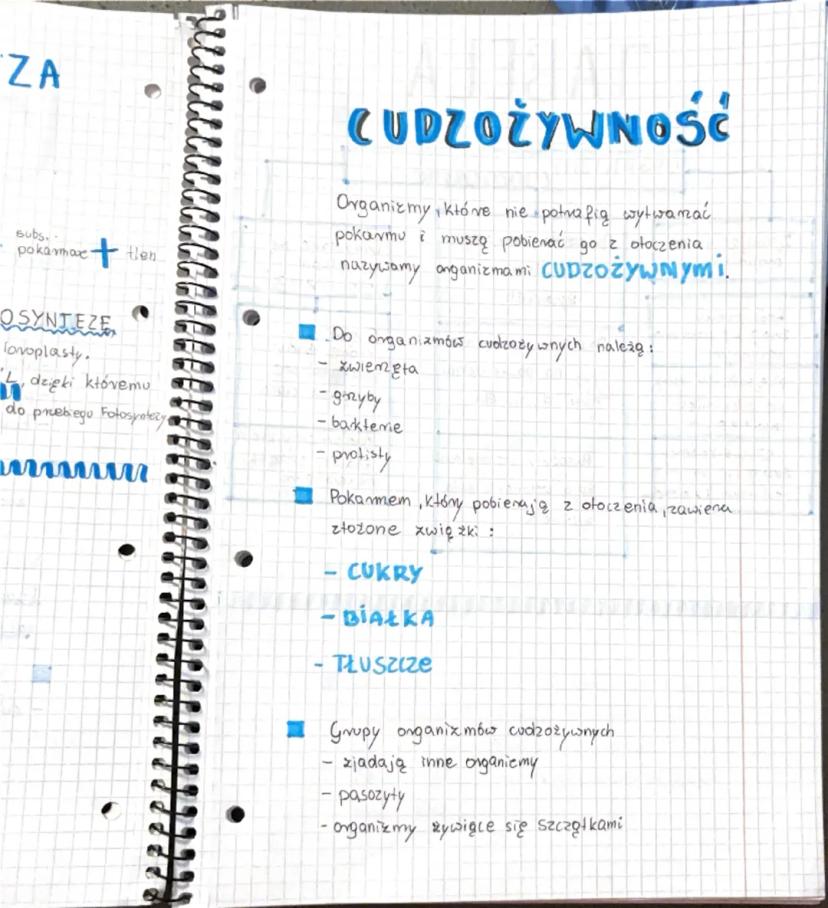 ZA
subs.
pokarmoe + tlen
OSYNTEZĘ
loroplasty.
Ł, dzięki któremu
do przebiegu Fotosyntezy
CUDZOŻYWNOŚĆ
Organizmy, które nie potrafią wytwarzać
pokarmu i muszą pobierać go z otoczenia
nazywamy organizmami CUDZOŻYWNYMi.
Do organizmów cudzożywnych należą:
- zwierzęta
- grzyby
- bakterie
- protisty
Pokarmem, który pobierają z otoczenia, zawiera
złożone związki:
- CUKRY
- BiAŁKA
- TŁUSZCZE
Grupy organizmów cudzożywnych
- zjadają inne organizmy
- pasożyty
- organizmy żywiące się szczątkami